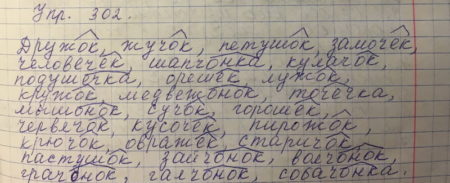 Упр. 302.
Дружок, жучок, петушок, замочек,
человечек, шапчонка, кулачок,
подушочка, орешек, лужок,
кружок, медвежонок, точечка,
мышонок, сучок, горошек,
червячок, кусочек, пирожок,
крючок, овражек, старичок,
пастушок, зайчонок, волчонок,
грачонок, галчонок, собачонка.